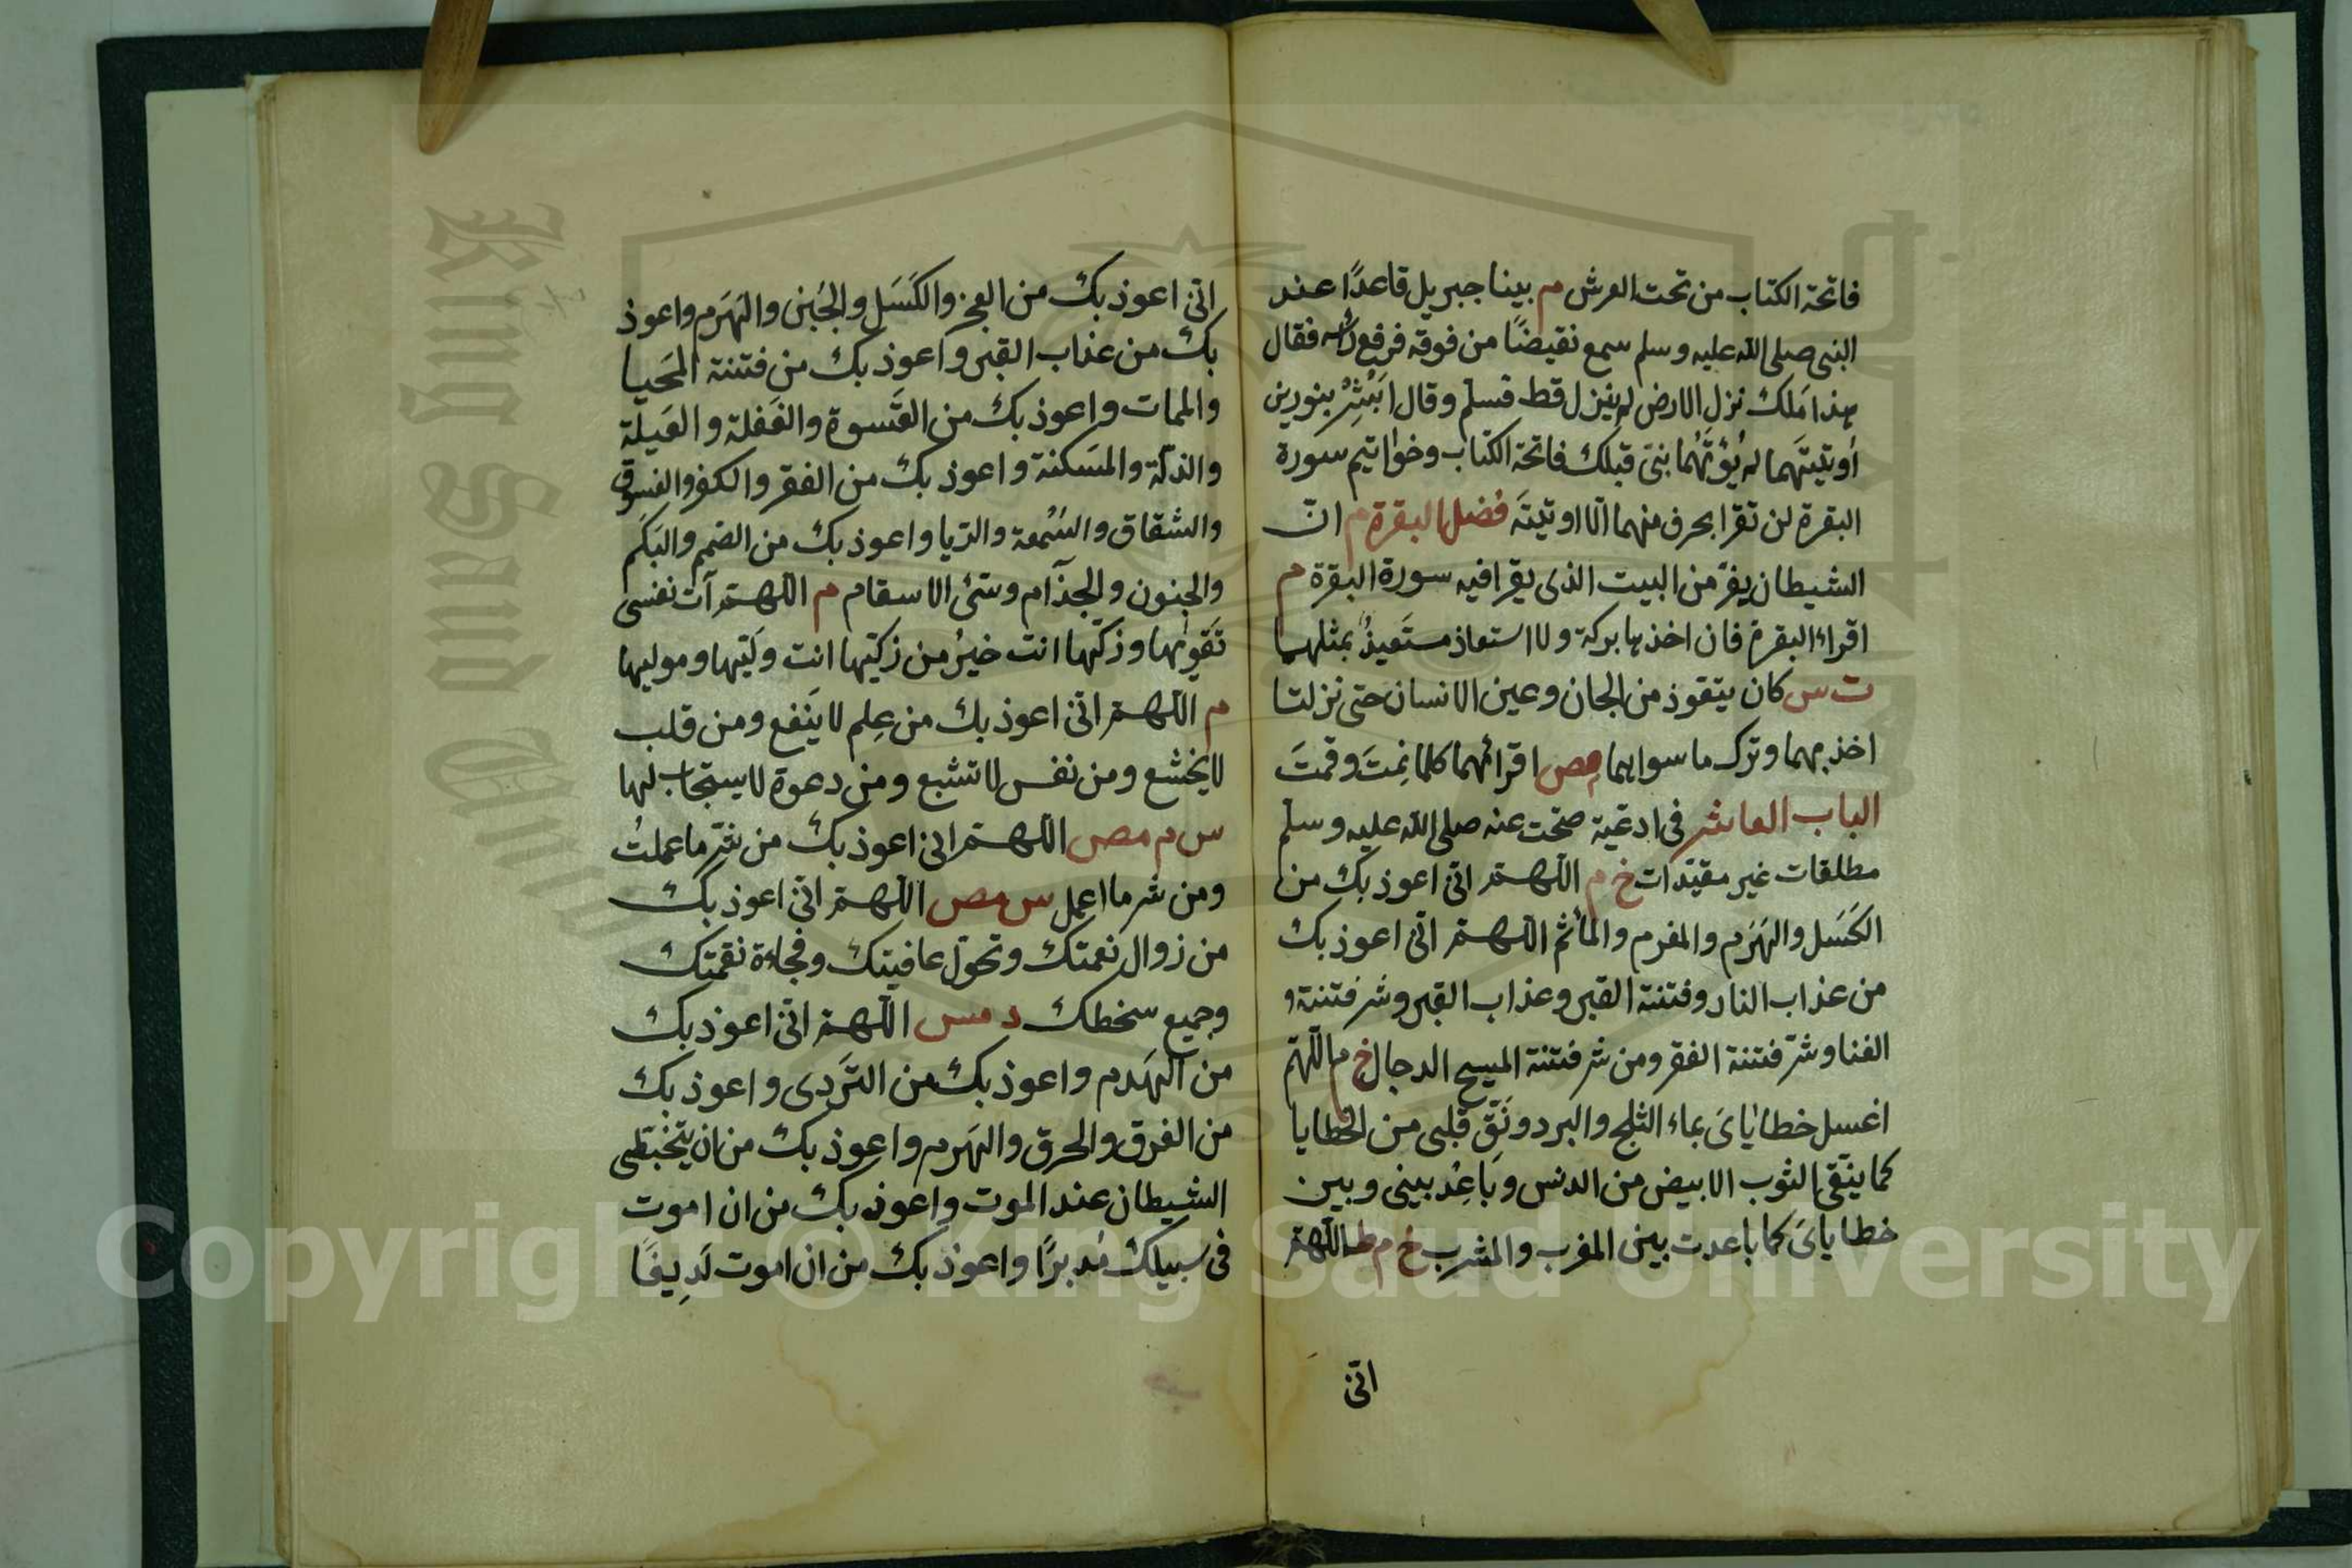 فاتحة الكتاب من تحت العرش م بينا جبريل قاعدًا عند
النبى صلى الله عليه وسلم سمع نقيضًا من فوقه فرفع راسه فقال
هذا مَلك نزل الارض لم ينزل قط فسلم وقال اَبْشِرْ بنورين
اُوتيتَهما لم يُؤتَهُما نبىّ قبلك فاتحة الكتاب وخواتيم سورة
البقرة لن تقرا بحرف منهما الّا اوتيتَه فضل البقرة م انّ
الشيطان يفرّ من البيت الذى يقرا فيه سورة البقرة م
اقراء البقرة فان اخذها بركة ولا استعاذ مستعيذٌ بمثلهما
ت س كان يتعوذ من الجان وعين الانسان حتى نزلتا
اخذ بهما وترك ما سواهما مص اقرائهما كلما نِمتَ وقمتَ
الباب العاشر فى ادعية صحّت عنه صلى الله عليه وسلم
مطلقات غير مقيّدات خ م اللّهمّ انّى اعوذ بك من
الكَسَل والهَرَم والمغرم والمأثم اللّهمّ انّى اعوذ بك
من عذاب النار وفتنة القبر وعذاب القبر وشر فتنة و
الغنا وشرّ فتنة الفقر ومن شر فتنة المسيح الدجال خ م اللّهمّ
اغسل خطاياىَ بماء الثلج والبَرد ونَقِّ قلبى من الخطايا
كما ينقّى الثوب الابيض من الدنس وبَاعِدْ بينى وبين
خطاياىَ كما باعدت بين المغرب والمشرب خ م ط اللّهمّ
انّى
انّى اعوذ بك من العجز والكَسَل والجُبن والهَرَم واعوذ
بك من عذاب القبر واعوذ بك من فتنة المَحيا
والممات واعوذ بك من القَسوة والغَفلة والعَيلة
والذلّة والمسَكنة واعوذ بك من الفقر والكفر والفسوق
والشقاق والسُمعة والريا واعوذ بك من الصَم والبَكَم
والجنون والجذام وسئ الاسقام م اللّهمّ آت نفسى
تَقويٰها وزكّها انت خيرُ من زكّيها انت وَليّها وموليها
م اللّهمّ انّى اعوذ بك من عِلم لا يَنفع ومن قلب
لا يخشع ومن نفس لا تشبع ومن دعوة لا يستجاب لها
س م مص اللّهمّ انى اعوذ بك من شرّ ما عملتُ
ومن شر ما اعمل س مص اللّهمّ انّى اعوذ بك
من زوال نعمتك وتحوّل عافيتك وفجاءة نقمتك
وجميع سخطك د مس اللّهمّ انّى اعوذ بك
من الهَدم واعوذ بك من التَردى واعوذ بك
من الغرق والحرق والهَرم واعوذ بك من ان يتخبّطنى
الشيطان عند الموت واعوذ بك من ان اموت
فى سبيلك مُدبرًا واعوذ بك من ان اموت لَدِيغًا
Copyright © King Saud University